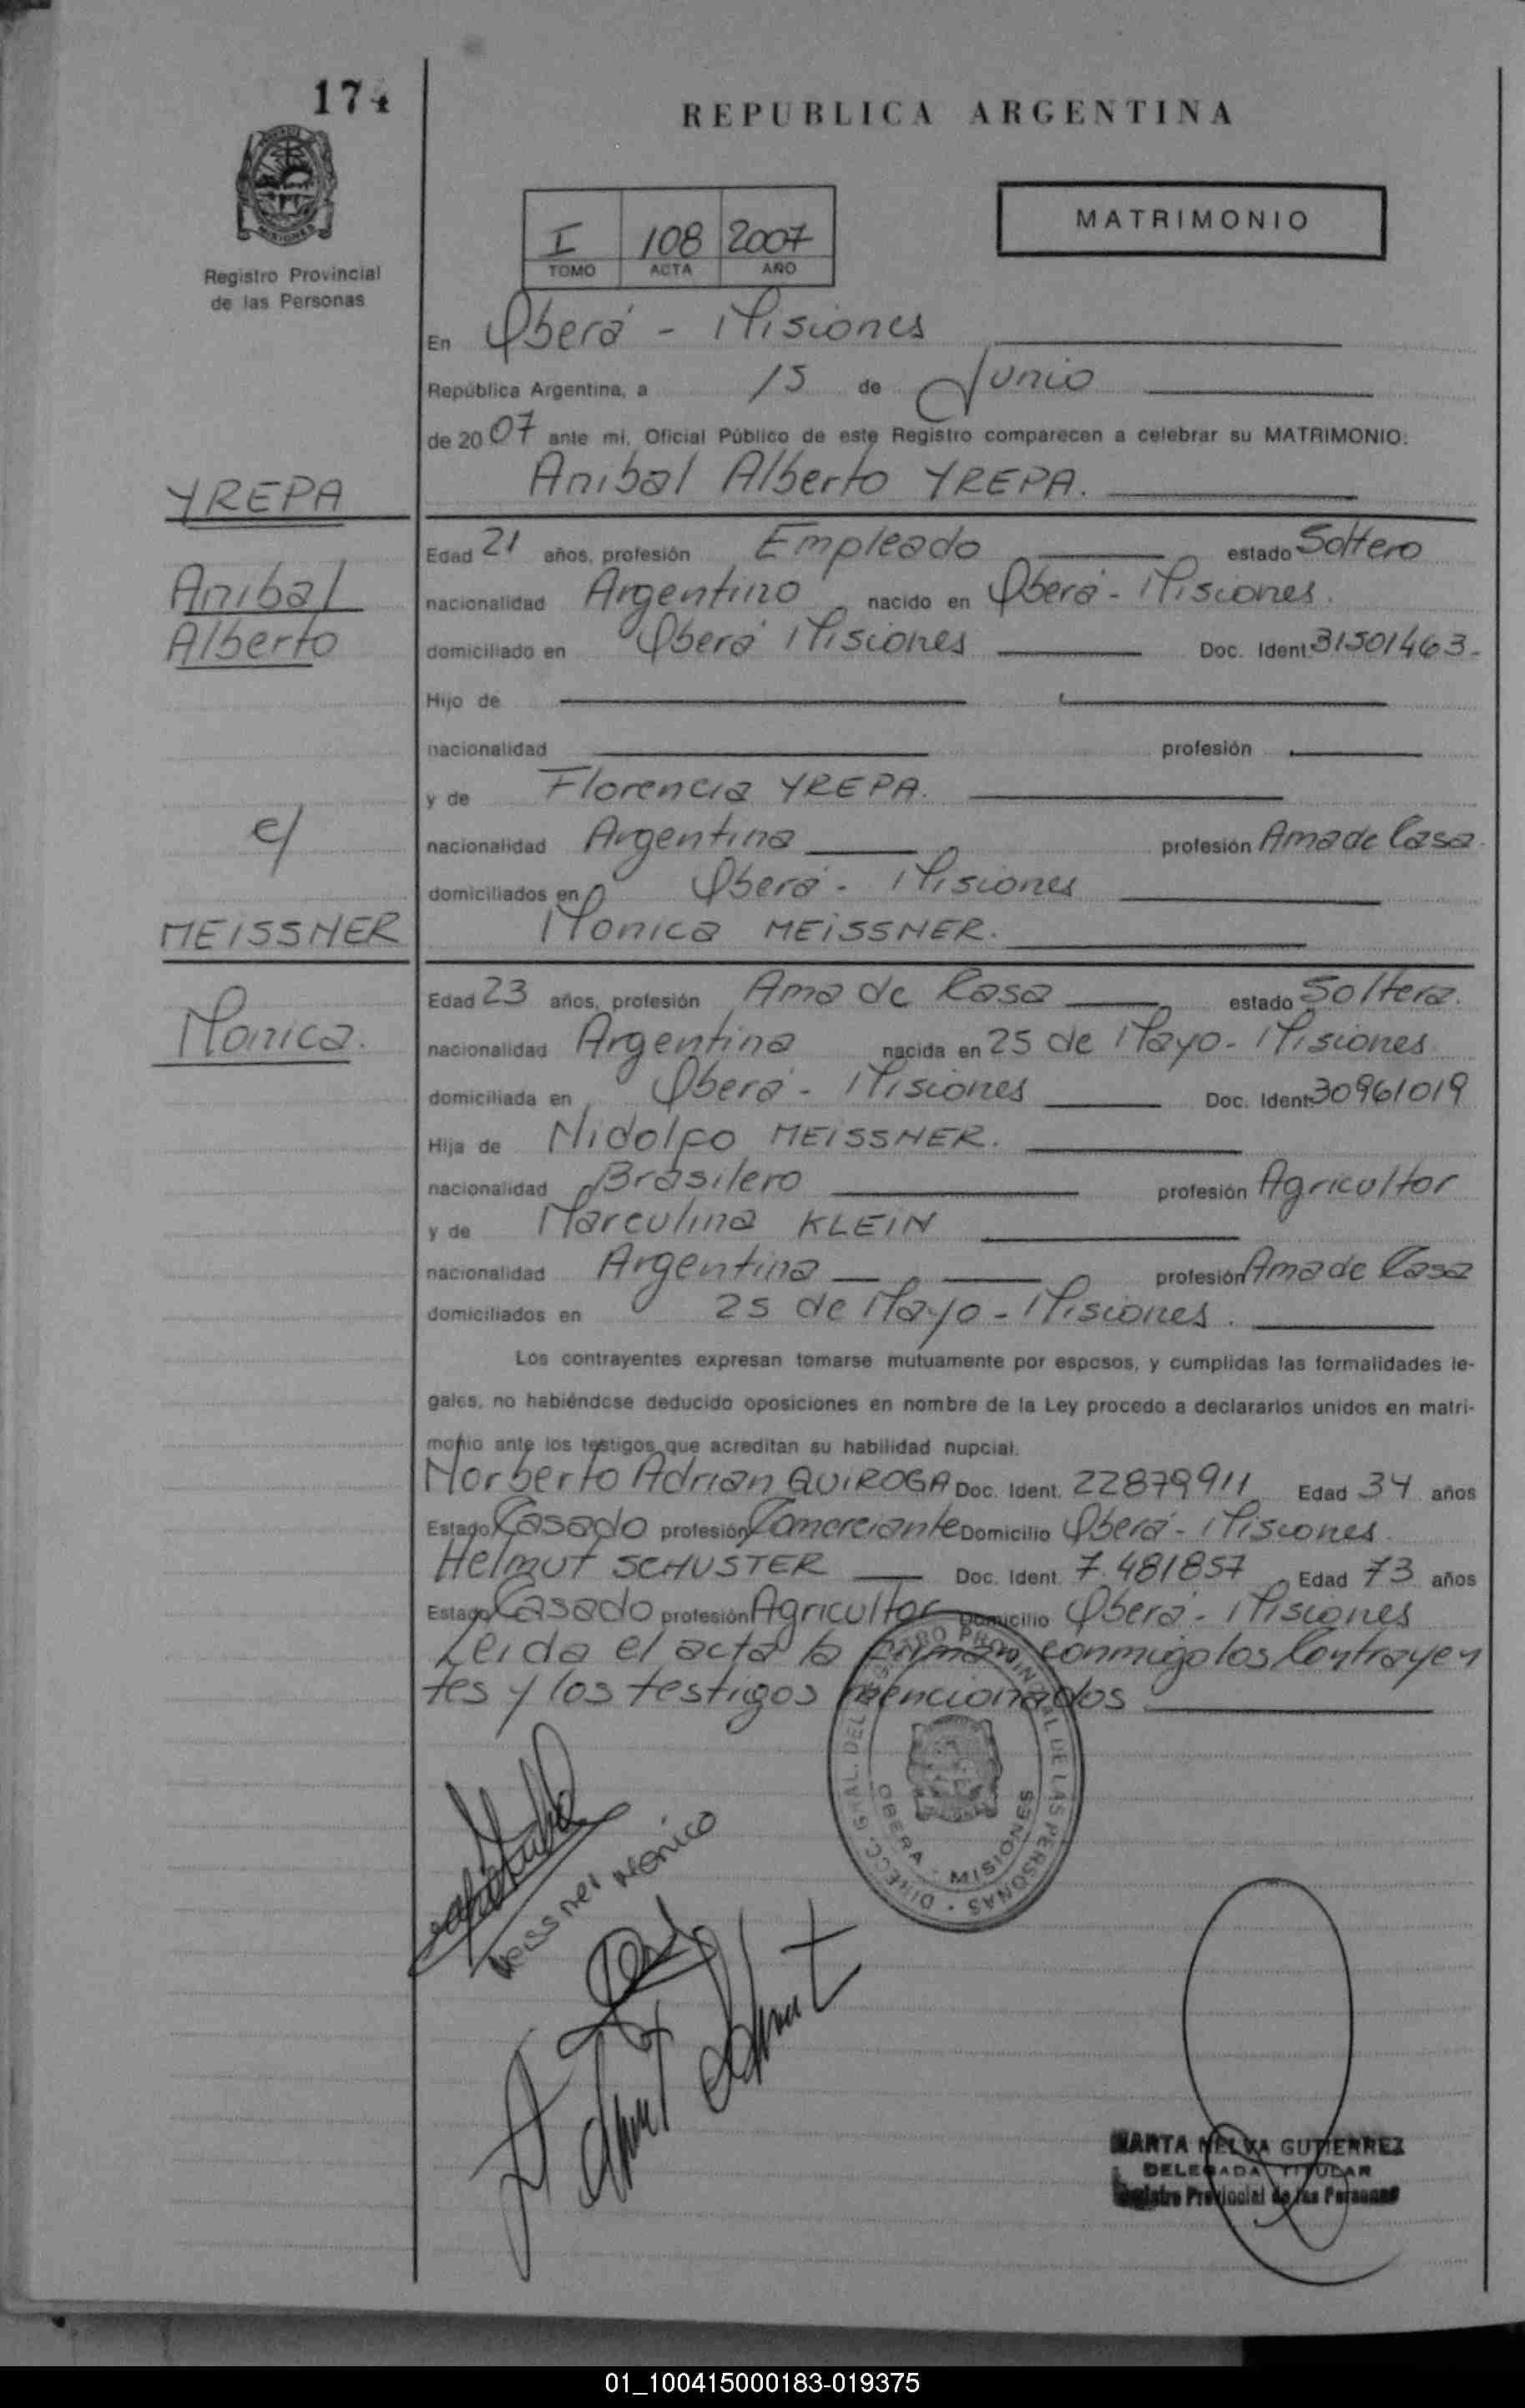 174
REPUBLICA ARGENTINA
MATRIMONIO
I 108 2007
TOMO ACTA AÑO
Registro Provincial
de las Personas
En Oberá - Misiones
República Argentina, a 15 de Junio
de 2007 ante mi, Oficial Público de este Registro comparecen a celebrar su MATRIMONIO:
Anibal Alberto YREPA.
YREPA
Anibal
Alberto
Edad 21 años, profesión Empleado estado Soltero
nacionalidad Argentino nacido en Oberá - Misiones.
domiciliado en Oberá Misiones Doc. Ident. 31501463.
Hijo de
nacionalidad profesión
y de Florencia YREPA.
nacionalidad Argentina profesión Ama de Casa.
domiciliados en Oberá - Misiones
c/
MEISSNER
Monica.
Monica MEISSNER.
Edad 23 años, profesión Ama de Casa estado Soltera.
nacionalidad Argentina nacida en 25 de Mayo - Misiones
domiciliada en Oberá - Misiones Doc. Ident. 30961019
Hija de Nidolfo MEISSNER.
nacionalidad Brasilero profesión Agricultor
y de Marculina KLEIN
nacionalidad Argentina profesión Ama de Casa
domiciliados en 25 de Mayo - Misiones.
Los contrayentes expresan tomarse mutuamente por esposos, y cumplidas las formalidades le-
gales, no habiéndose deducido oposiciones en nombre de la Ley procedo a declararlos unidos en matri-
monio ante los testigos que acreditan su habilidad nupcial.
Norberto Adrian QUIROGA Doc. Ident. 22879911 Edad 34 años
Estado Casado profesión Comerciante Domicilio Oberá - Misiones.
Helmut SCHUSTER Doc. Ident. 7.481857 Edad 73 años
Estado Casado profesión Agricultor Domicilio Oberá - Misiones
Leida el acta la firman conmigo los Contrayen
tes y los testigos mencionados
DIRECC. GRAL. DEL REGISTRO PROVINCIAL DE LAS PERSONAS
OBERA - MISIONES
Meissner Monica
MARTA NELVA GUTIERREZ
DELEGADA TITULAR
Registro Provincial de las Personas
01_100415000183-019375